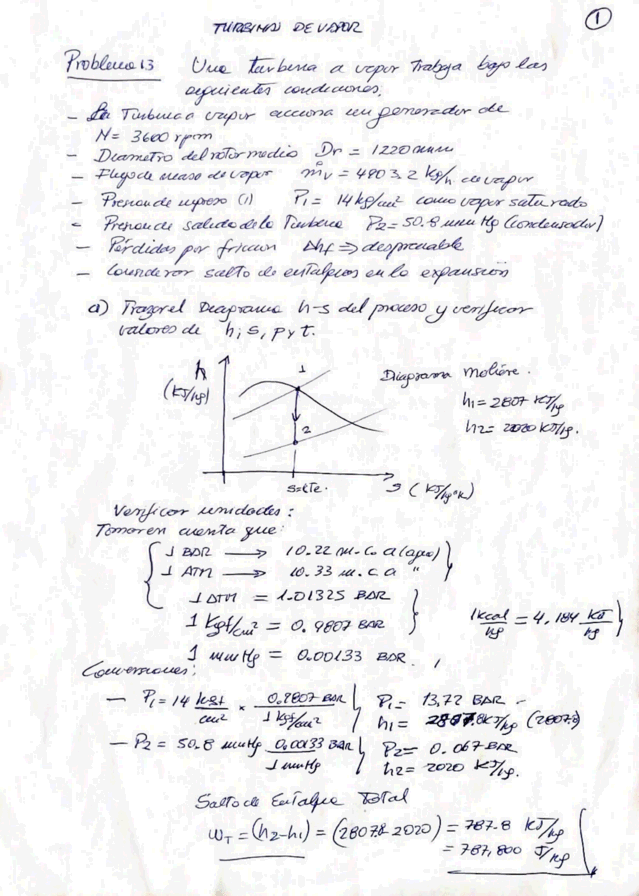 1
TURBINAS DE VAPOR
Problema 13 Una turbina a vapor trabaja bajo las
siguientes condiciones.
- La Turbina a vapor acciona un generador de
N = 3600 rpm
- Diametro del rotor medio Dr = 1220 mm
- Flujo de masa de vapor ṁv = 4903.2 kg/h de vapor
- Presion de ingreso (1) P1 = 14 kg/cm² como vapor saturado
- Presion de salida de la Turbina P2 = 50.8 mm Hg (condensador)
- Pérdidas por friccion Δhf ⇒ despreciable
- Considerar salto de entalpias en la expansión
a) Trazar el Diagrama h-s del proceso y verificar
valores de h, s, p y t.
h
(KJ/kg)
1
2
s=cte.
s (KJ/kg°K)
Diagrama Moliere.
h1 = 2807 KJ/kg
h2 = 2020 KJ/kg.
Verificar unidades:
Tomar en cuenta que:
1 BAR → 10.22 m.c.a (agua)
1 ATM → 10.33 m.c.a "
1 ATM = 1.01325 BAR
1 Kgf/cm² = 0.9807 BAR
1 mm Hg = 0.00133 BAR.
1 kcal/kg = 4.184 KJ/kg
Conversiones:
- P1 = 14 kgf/cm² × 0.9807 BAR / 1 kgf/cm² P1 = 13,72 BAR
h1 = 2807.8 KJ/kg (2807.8)
- P2 = 50.8 mm Hg 0,00133 BAR / 1 mm Hg P2 = 0.067 BAR
h2 = 2020 KJ/kg.
Salto de Entalpia Total
WT = (h2-h1) = (2807.8-2020) = 787.8 KJ/kg
= 787,800 J/kg